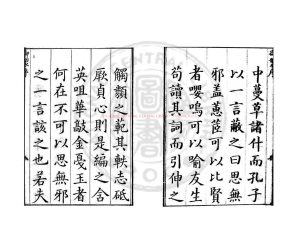 中蔓草諸什而孔子
以一言蔽之曰思無
邪盖蕙茝可以比賢
者嚶鳴可以喻友生
苟讀其詞而引伸之
觸類之範其軼志砥
厥貞心則是編之含
英咀華敲金戛玉者
何在不可以思無邪
之一言該之也若夫